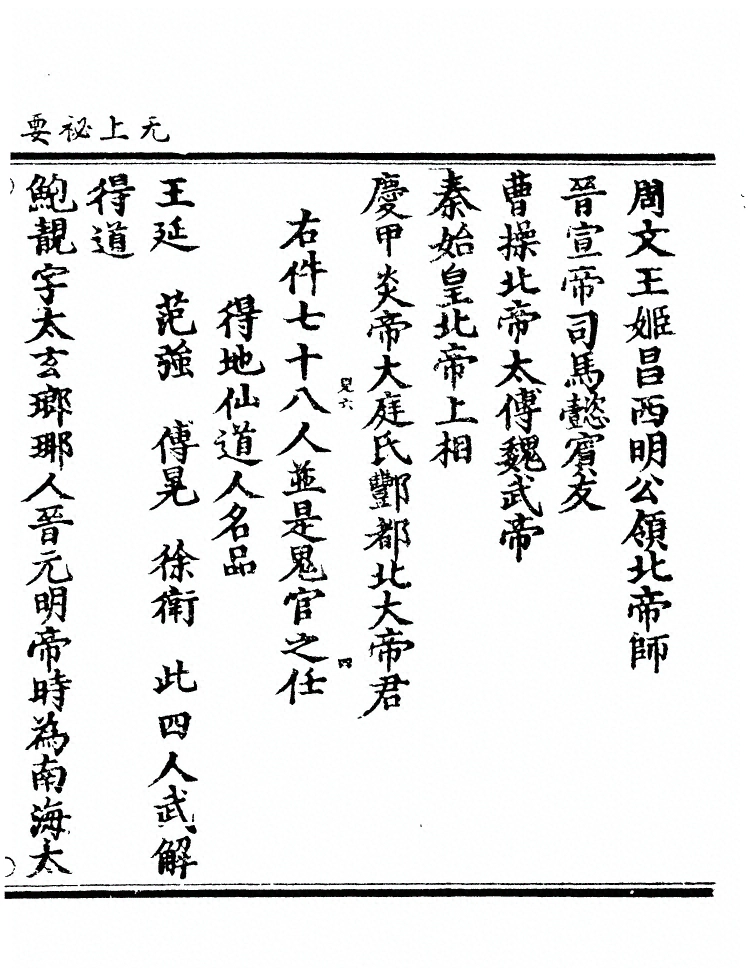 无上祕要
周文王姬昌西明公領北帝師
晉宣帝司馬懿賓友
曹操北帝太傅魏武帝
秦始皇北帝上相
慶甲炎帝大庭氏酆都北大帝君
右件七十八人並是鬼官之任
得地仙道人名品
王延 范強 傅晃 徐衛 此四人武解
得道
鮑靚字太玄瑯琊人晉元明帝時為南海太